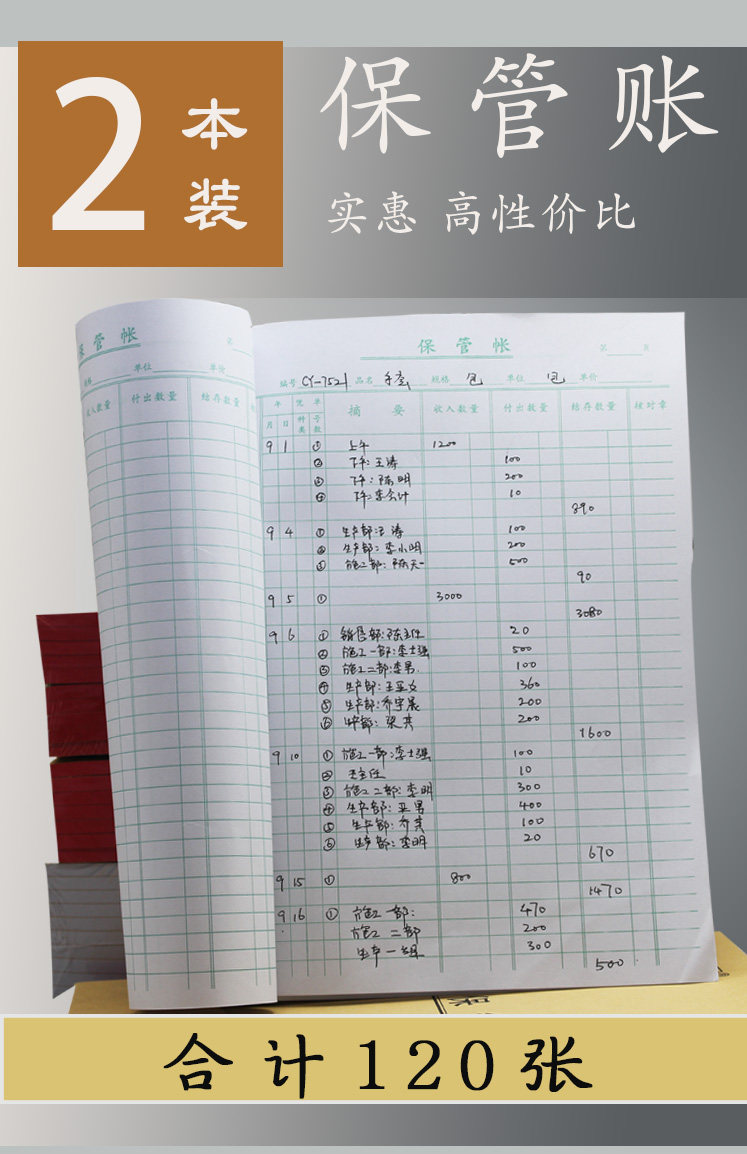 2本装
保管账
实惠 高性价比
保管帐
第
规格 单位 单价
收入数量 付出数量 结存数量
保管帐
第 页
编号 CY-7521 品名 手套 规格 包 单位 包 单价
年 凭单 摘要 收入数量 付出数量 结存数量 核对章
月 日 种类 号数
9 1 ① 上午 1200
② 下午:王涛 100
③ 下午:陈明 200
④ 下午:李会计 10
890
9 4 ① 生产部:王涛 100
② 生产部:李小明 200
③ 施工部:陈天一 500
90
9 5 ① 3000
3080
9 6 ① 销售部:陈主任 20
② 施工一部:李士强 500
③ 施工二部:李男 100
④ 生产部:王亚文 360
⑤ 生产部:乔宇晨 200
⑥ 生产部:梁其 200
1600
9 10 ① 施工一部:李士强 100
② 王主任 10
③ 施工二部:李明 300
④ 生产部:亚男 400
⑤ 生产部:乔其 100
⑥ 生产部:李明 20
670
9 15 ① 800
1470
9 16 ① 施工一部: 470
施工二部 200
生产一组 300
500
合计120张